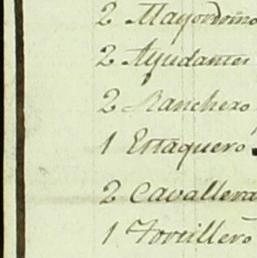 2 Mayordomo
2 Ayudantes
2 Ranchero
1 Estaquero
2 Cavallera
1 Tortillero